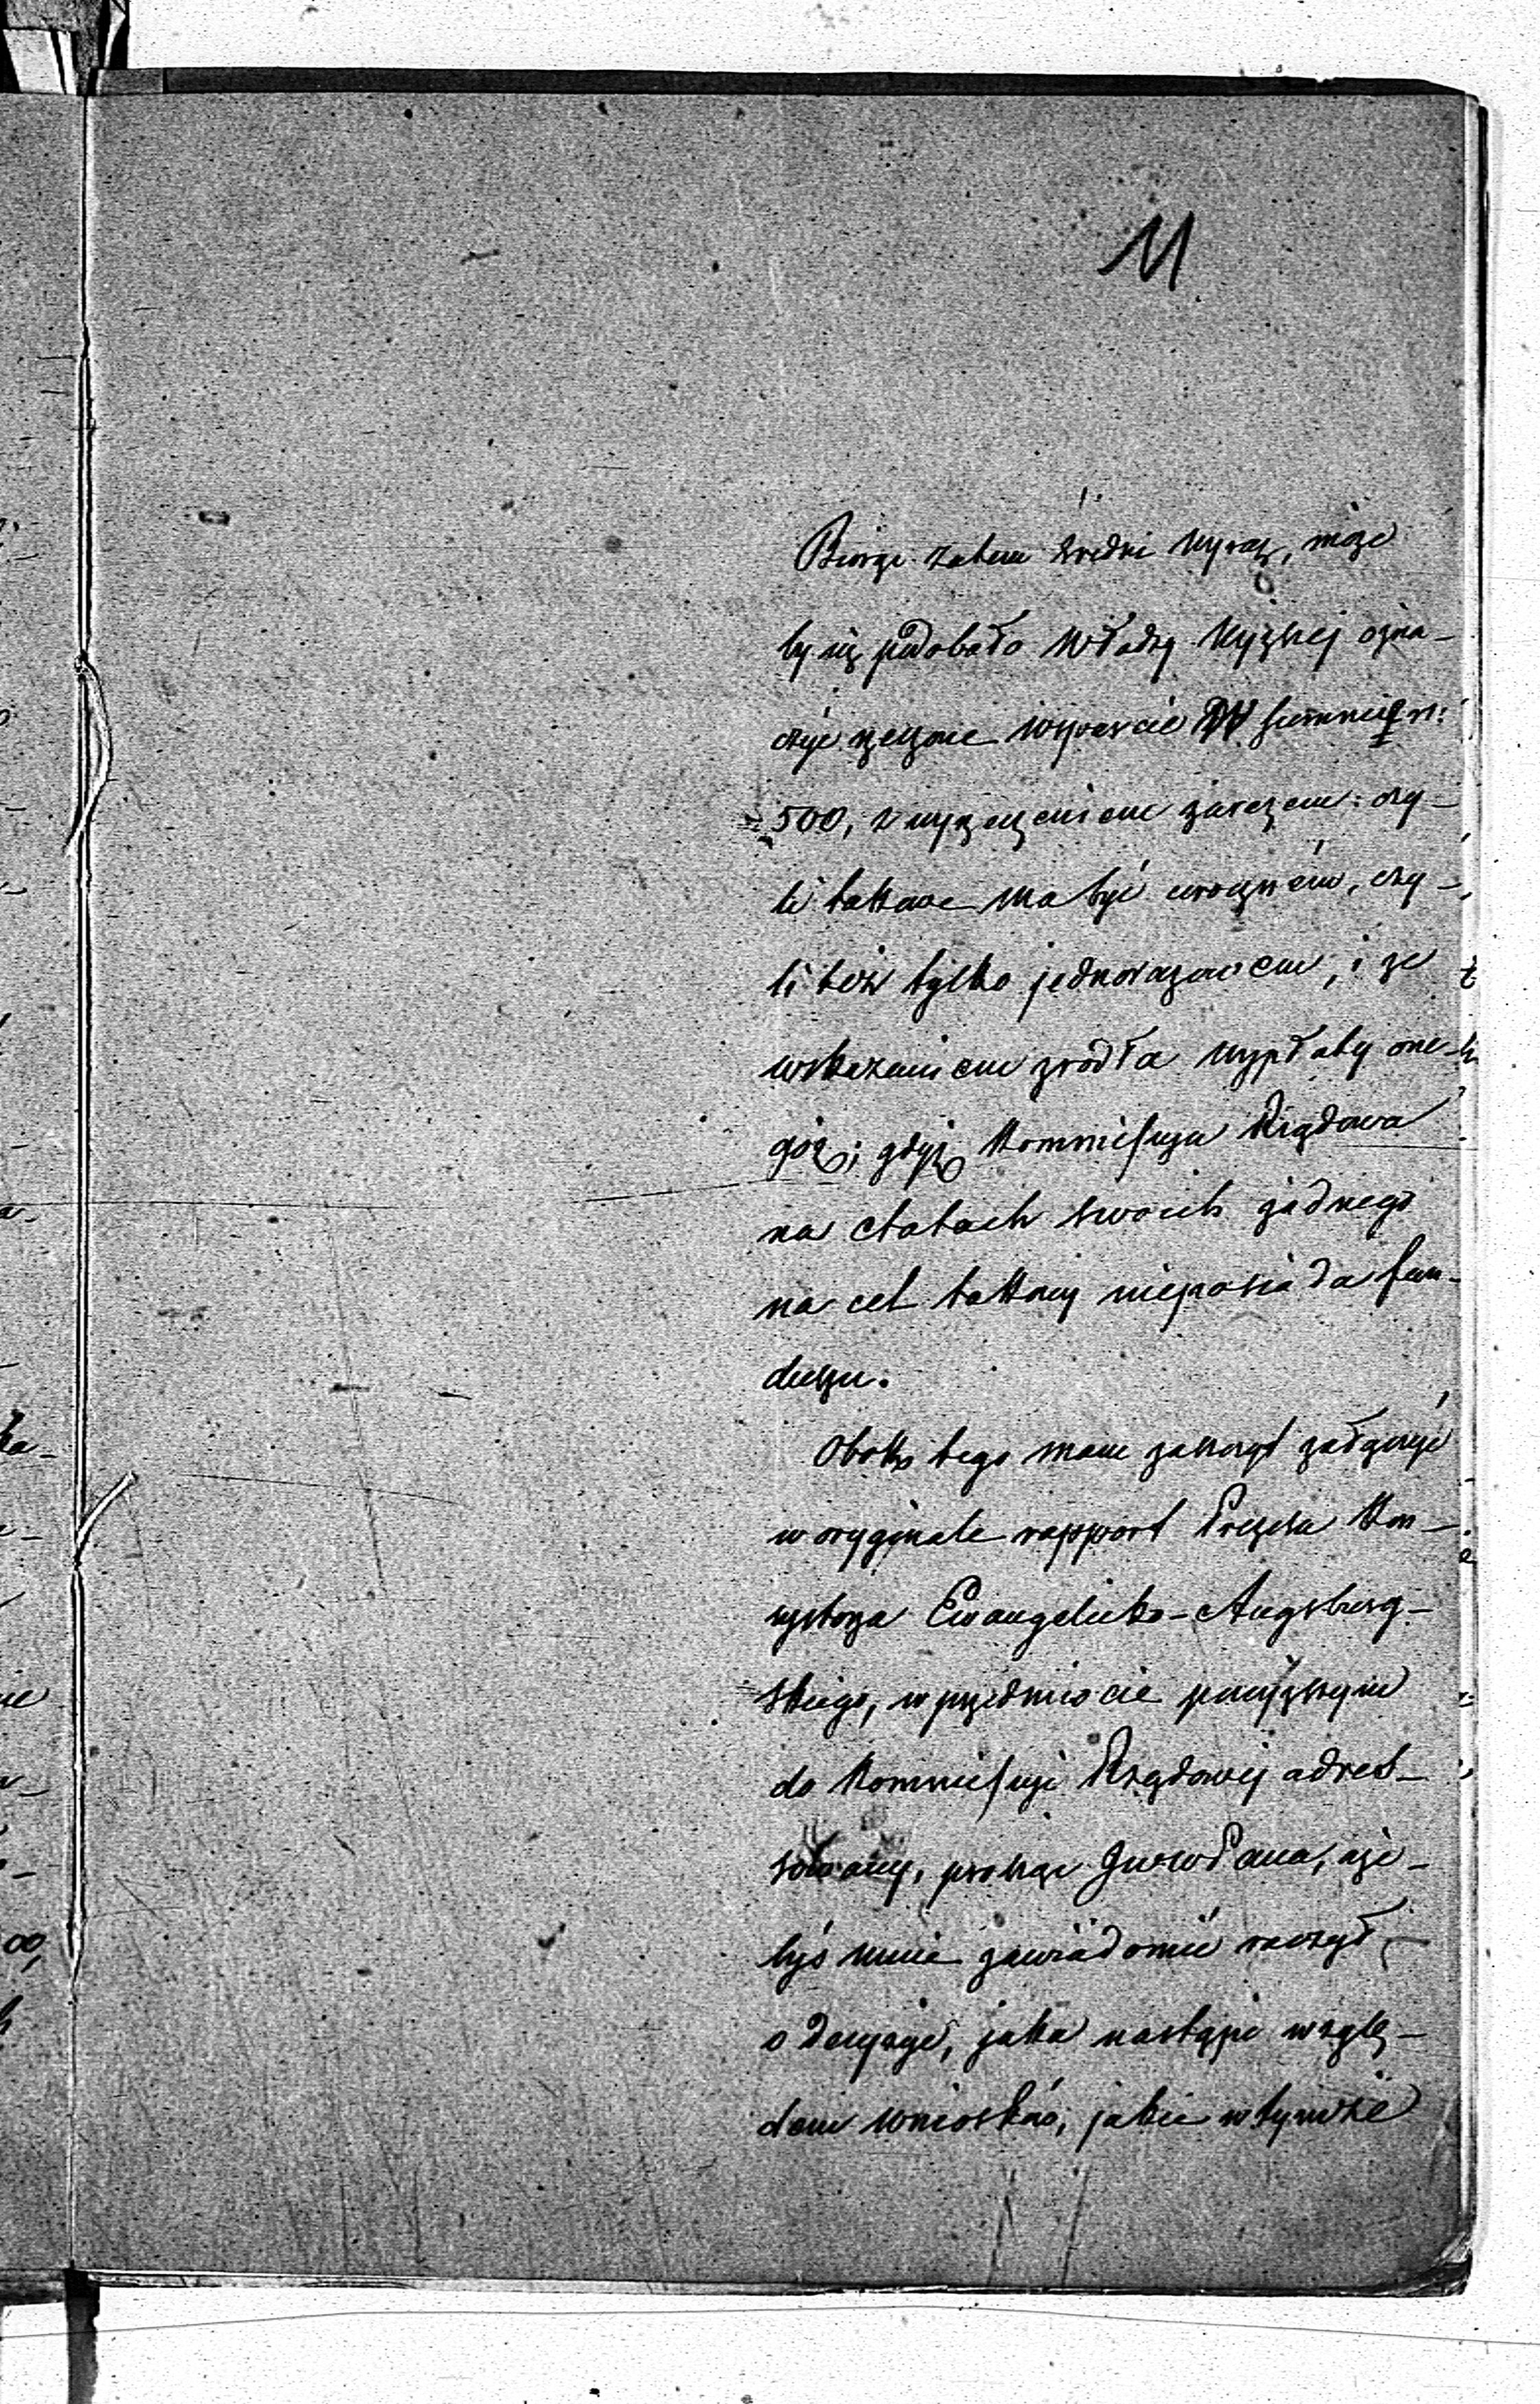 11
Biorąc zatem średni wyraz, może
by się podobało Władzy Wyższej ozna-
czyć rzeczone wsparcie w summie rs:
500, z wyrzeczeniem zarazem: czy-
li takowe ma być rocznem, czy-
li też tylko jednorazowem, i ze
wskazaniem źródła wypłaty one-
góż; gdyż Kommissyja Rządowa
na etatach swoich żadnego
na cel takowy nieposiada fun-
duszu.
Obok tego mam zaszczyt załączyć
w oryginale rapport Prezesa Kon-
systorza Ewangelicko-Augsburg-
skiego, w przedmiocie powyższym
do Kommissyi Rządowej adres-
sowany, prosząc JWW Pana, aże-
byś mnie zawiadomić raczył
o decyzyi, jaka nastąpi wzglę-
dem wniosków, jakie w tymże